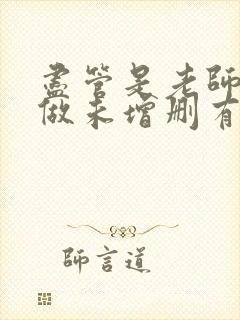 盡管是老師
做未增刪有
師言道